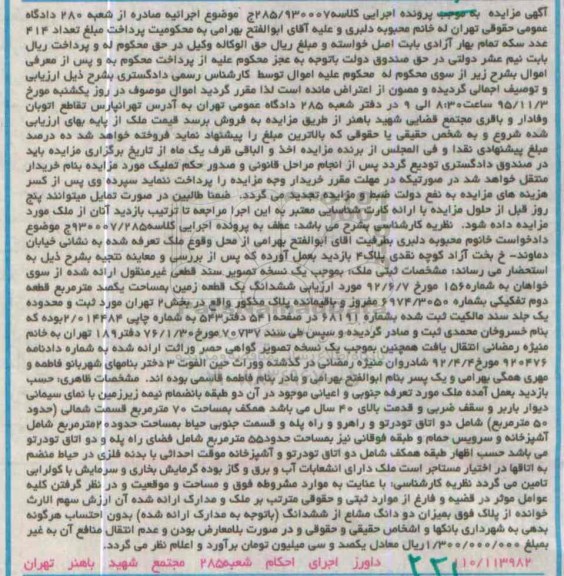 آگهی مزایده به موجب پرونده اجرایی کلاسه ۲۸۵/۹۳۰۰۰۷ج موضوع اجرائیه صادره از شعبه ۲۸۰ دادگاه
عمومی حقوقی تهران له خانم محبوبه دلبری و علیه آقای ابوالفتح بهرامی به محکومیت پرداخت مبلغ تعداد ۴۱۴
عدد سکه تمام بهار آزادی بابت اصل خواسته و مبلغ ریال حق الوکاله وکیل در حق محکوم له و پرداخت ریال
بابت نیم عشر دولتی در حق صندوق دولت باتوجه به عجز محکوم علیه از پرداخت محکوم به و پس از معرفی
اموال بشرح زیر از سوی محکوم له محکوم علیه اموال توسط کارشناس رسمی دادگستری بشرح ذیل ارزیابی
و توصیف اجمالی گردیده و مصون از اعتراض مانده است لذا مقرر گردید اموال موصوف در روز یکشنبه مورخ
۹۵/۱۱/۳ ساعت ۸:۳۰ الی ۹ در دفتر شعبه ۲۸۵ دادگاه عمومی تهران به آدرس تهرانپارس تقاطع اتوبان
وفادار و باقری مجتمع قضایی شهید باهنر از طریق مزایده به فروش برسد قیمت ملک از پایه بهای ارزیابی
شده شروع و به شخص حقیقی یا حقوقی که بالاترین مبلغ را پیشنهاد نماید فروخته خواهد شد ده درصد
مبلغ پیشنهادی نقدا و فی المجلس از برنده مزایده اخذ و الباقی ظرف یک ماه از تاریخ برگزاری مزایده باید
در صندوق دادگستری تودیع گردد پس از انجام مراحل قانونی و صدور حکم تملیک مورد مزایده بنام خریدار
منتقل خواهد شد در صورتیکه در مهلت مقرر خریدار وجه مزایده را پرداخت ننماید سپرده وی پس از کسر
هزینه های مزایده به نفع دولت ضبط و مزایده تجدید می گردد. ضمنا طالبین در صورت تمایل میتوانند پنج
روز قبل از حلول مزایده با ارائه کارت شناسایی معتبر به این اجرا مراجعه تا ترتیب بازدید آنان از ملک مورد
مزایده داده شود. نظریه کارشناسی بشرح می باشد: عطف به پرونده اجرایی کلاسه ۹۳۰۰۰۷/۲۸۵ج موضوع
دادخواست خانوم محبوبه دلبری بطرفیت آقای ابوالفتح بهرامی از محل وقوع ملک تعرفه شده به نشانی خیابان
دماوند- خ بخت آزاد کوچه نقدی پلاک۴ بازدید بعمل آورده که پس از بررسی و معاینه نتیجه بشرح ذیل به
استحضار می رساند: مشخصات ثبتی ملک: بموجب یک نسخه تصویر سند قطعی غیرمنقول ارائه شده از سوی
خواهان به شماره ۱۵۶ مورخ ۹۲/۶/۷ مورد ارزیابی ششدانگ یک قطعه زمین بمساحت یکصد مترمربع قطعه
دوم تفکیکی بشماره ۶۹۷۴/۳۰۵۰ مفروز و باقیمانده پلاک مذکور واقع در بخش۲ تهران مورد ثبت و محدوده
یک جلد سند مالکیت ثبت شده بشماره ۶۸۱۹۱ در صفحه ۵۲ دفتر۵۴۳ به شماره چاپی ۲/۰۱۴۴۸۴بوده که
بنام خسروخان محمدی ثبت و صادر گردیده و سپس طی سند ۷۰۷۳۷ مورخ۷۶/۱/۳۰ دفتر۱۸۹ تهران به خانم
منیژه رمضانی انتقال یافت همچنین بموجب یک نسخه تصویر گواهی حصر وراثت ارائه شده به شماره دادنامه
۹۲۰۴۷۶ مورخ۹۲/۴/۴ شادروان منیژه رمضانی در گذشته ووراث حین الفوت ۳ دختر بنامهای شهربانو فاطمه و
مهری همگی بهرامی و یک پسر بنام ابوالفتح بهرامی و مادر بنام فاطمه قاسمی بوده اند. مشخصات ظاهری: حسب
بازدید بعمل آمده ملک مورد تعرفه جنوبی و اعیانی موجود در آن دو طبقه بانضمام نیمه زیرزمین با نمای سیمانی
دیوار باربر و سقف ضربی و قدمت بالای ۴۰ سال می باشد همکف بمساحت ۷۰ مترمربع قسمت شمالی (حدود
۵۰ مترمربع) شامل دو اتاق تودرتو و راهرو و راه پله و قسمت جنوبی حیاط بمساحت حدود۲۰مترمربع شامل
آشپزخانه و سرویس حمام و طبقه فوقانی نیز بمساحت حدود۵۵ مترمربع شامل فضای راه پله و دو اتاق تودرتو
می باشد حسب اظهار طبقه همکف شامل دو اتاق تودرتو و آشپزخانه موقت احداثی با بدنه فلزی در حیاط منضم
به اتاقها در اختیار مستاجر است ملک دارای انشعابات آب و برق و گاز بوده گرمایش بخاری و سرمایش با کولرآبی
تامین می گردد نظریه کارشناسی: با عنایت به موارد مشروطه فوق و مساحت و موقعیت و در نظر گرفتن کلیه
عوامل موثر در قضیه و فارغ از موارد ثبتی و حقوقی مترتب بر ملک و مدارک ارائه شده آن ارزش سهم الارث
خوانده از پلاک فوق بمیزان دو دانگ مشاع از ششدانگ (باتوجه به مدارک ارائه شده) بدون احتساب هرگونه
بدهی به شهرداری بانکها و اشخاص حقیقی و حقوقی و در صورت بلامعارض بودن و عدم انتقال منافع آن به غیر
بمبلغ ۱/۳۰۰/۰۰۰/۰۰۰ریال معادل یکصد و سی میلیون تومان برآورد و اعلام نظر می گردد.
۱۰/۱۱۳۹۸۲ داورز اجرای احکام شعبه۲۸۵ مجتمع شهید باهنر تهران